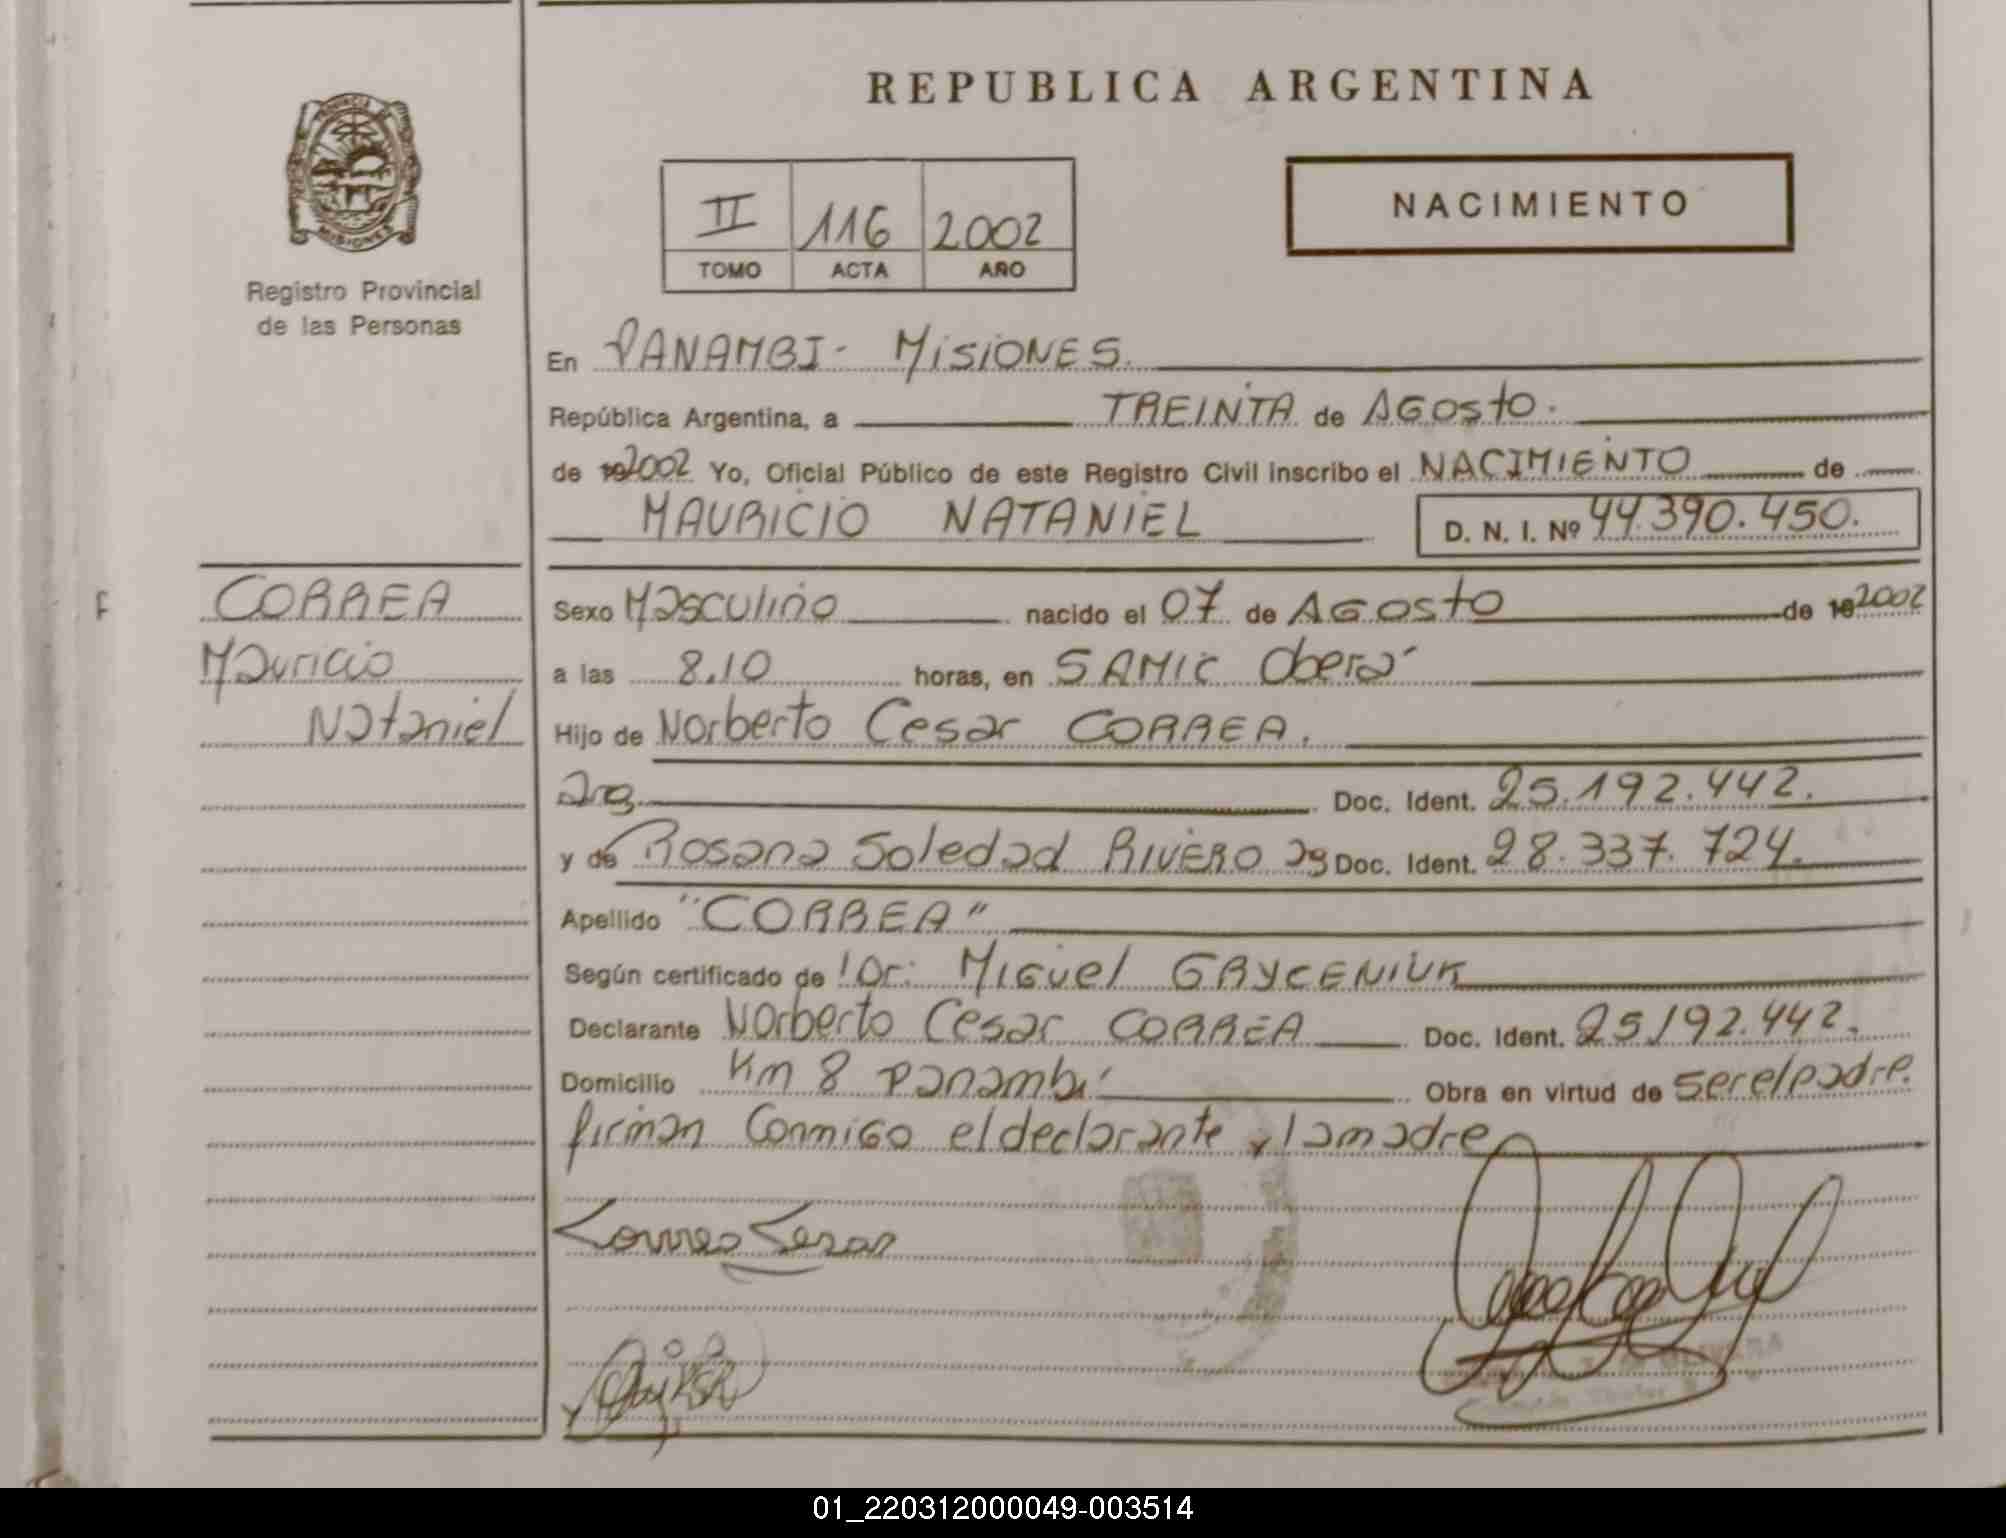 REPUBLICA ARGENTINA
PROVINCIA DE
MISIONES
Registro Provincial
de las Personas
II 116 2002
TOMO ACTA AÑO
NACIMIENTO
En PANAMBI - MISIONES.
República Argentina, a TREINTA de AGOSTO.
de 192002 Yo, Oficial Público de este Registro Civil inscribo el NACIMIENTO de
MAURICIO NATANIEL D. N. I. Nº 44.390.450.
CORREA
Mauricio
Nataniel
Sexo Masculino nacido el 07 de AGOSTO de 192002
a las 8.10 horas, en SAMIC Oberá
Hijo de Norberto Cesar CORREA.
arg. Doc. Ident. 25.192.442.
y de Rosana Soledad RIVERO ag Doc. Ident. 28.337.724.
Apellido "CORREA"
Según certificado de Dr. Miguel GRYCENIUK
Declarante Norberto Cesar CORREA Doc. Ident. 25192.442.
Domicilio Km 8 Panambí Obra en virtud de ser el padre.
firman conmigo el declarante y la madre
Correa Cesar
OLIVERA
01_220312000049-003514